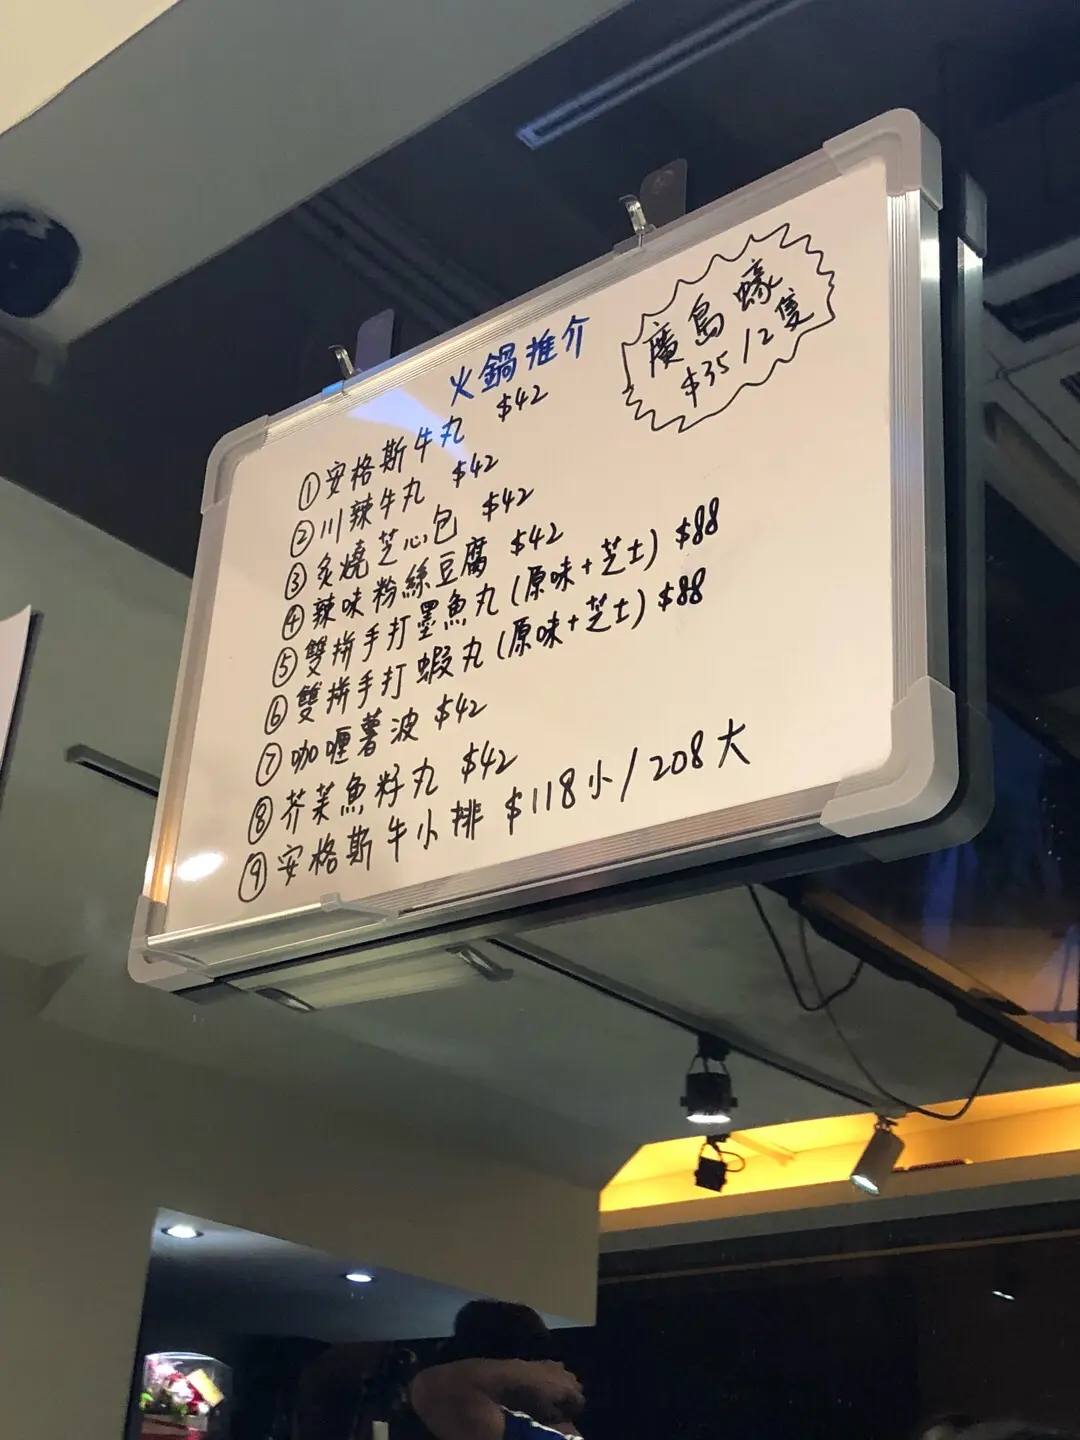 火鍋推介
廣島蠔
$35/2隻
①安格斯牛丸 $42
②川辣牛丸 $42
③炙燒芝心包 $42
④辣味粉絲豆腐 $42
⑤雙拼手打墨魚丸(原味+芝士) $88
⑥雙拼手打蝦丸(原味+芝士) $88
⑦咖喱薯波 $42
⑧芥茉魚籽丸 $42
⑨安格斯牛小排 $118小/208大